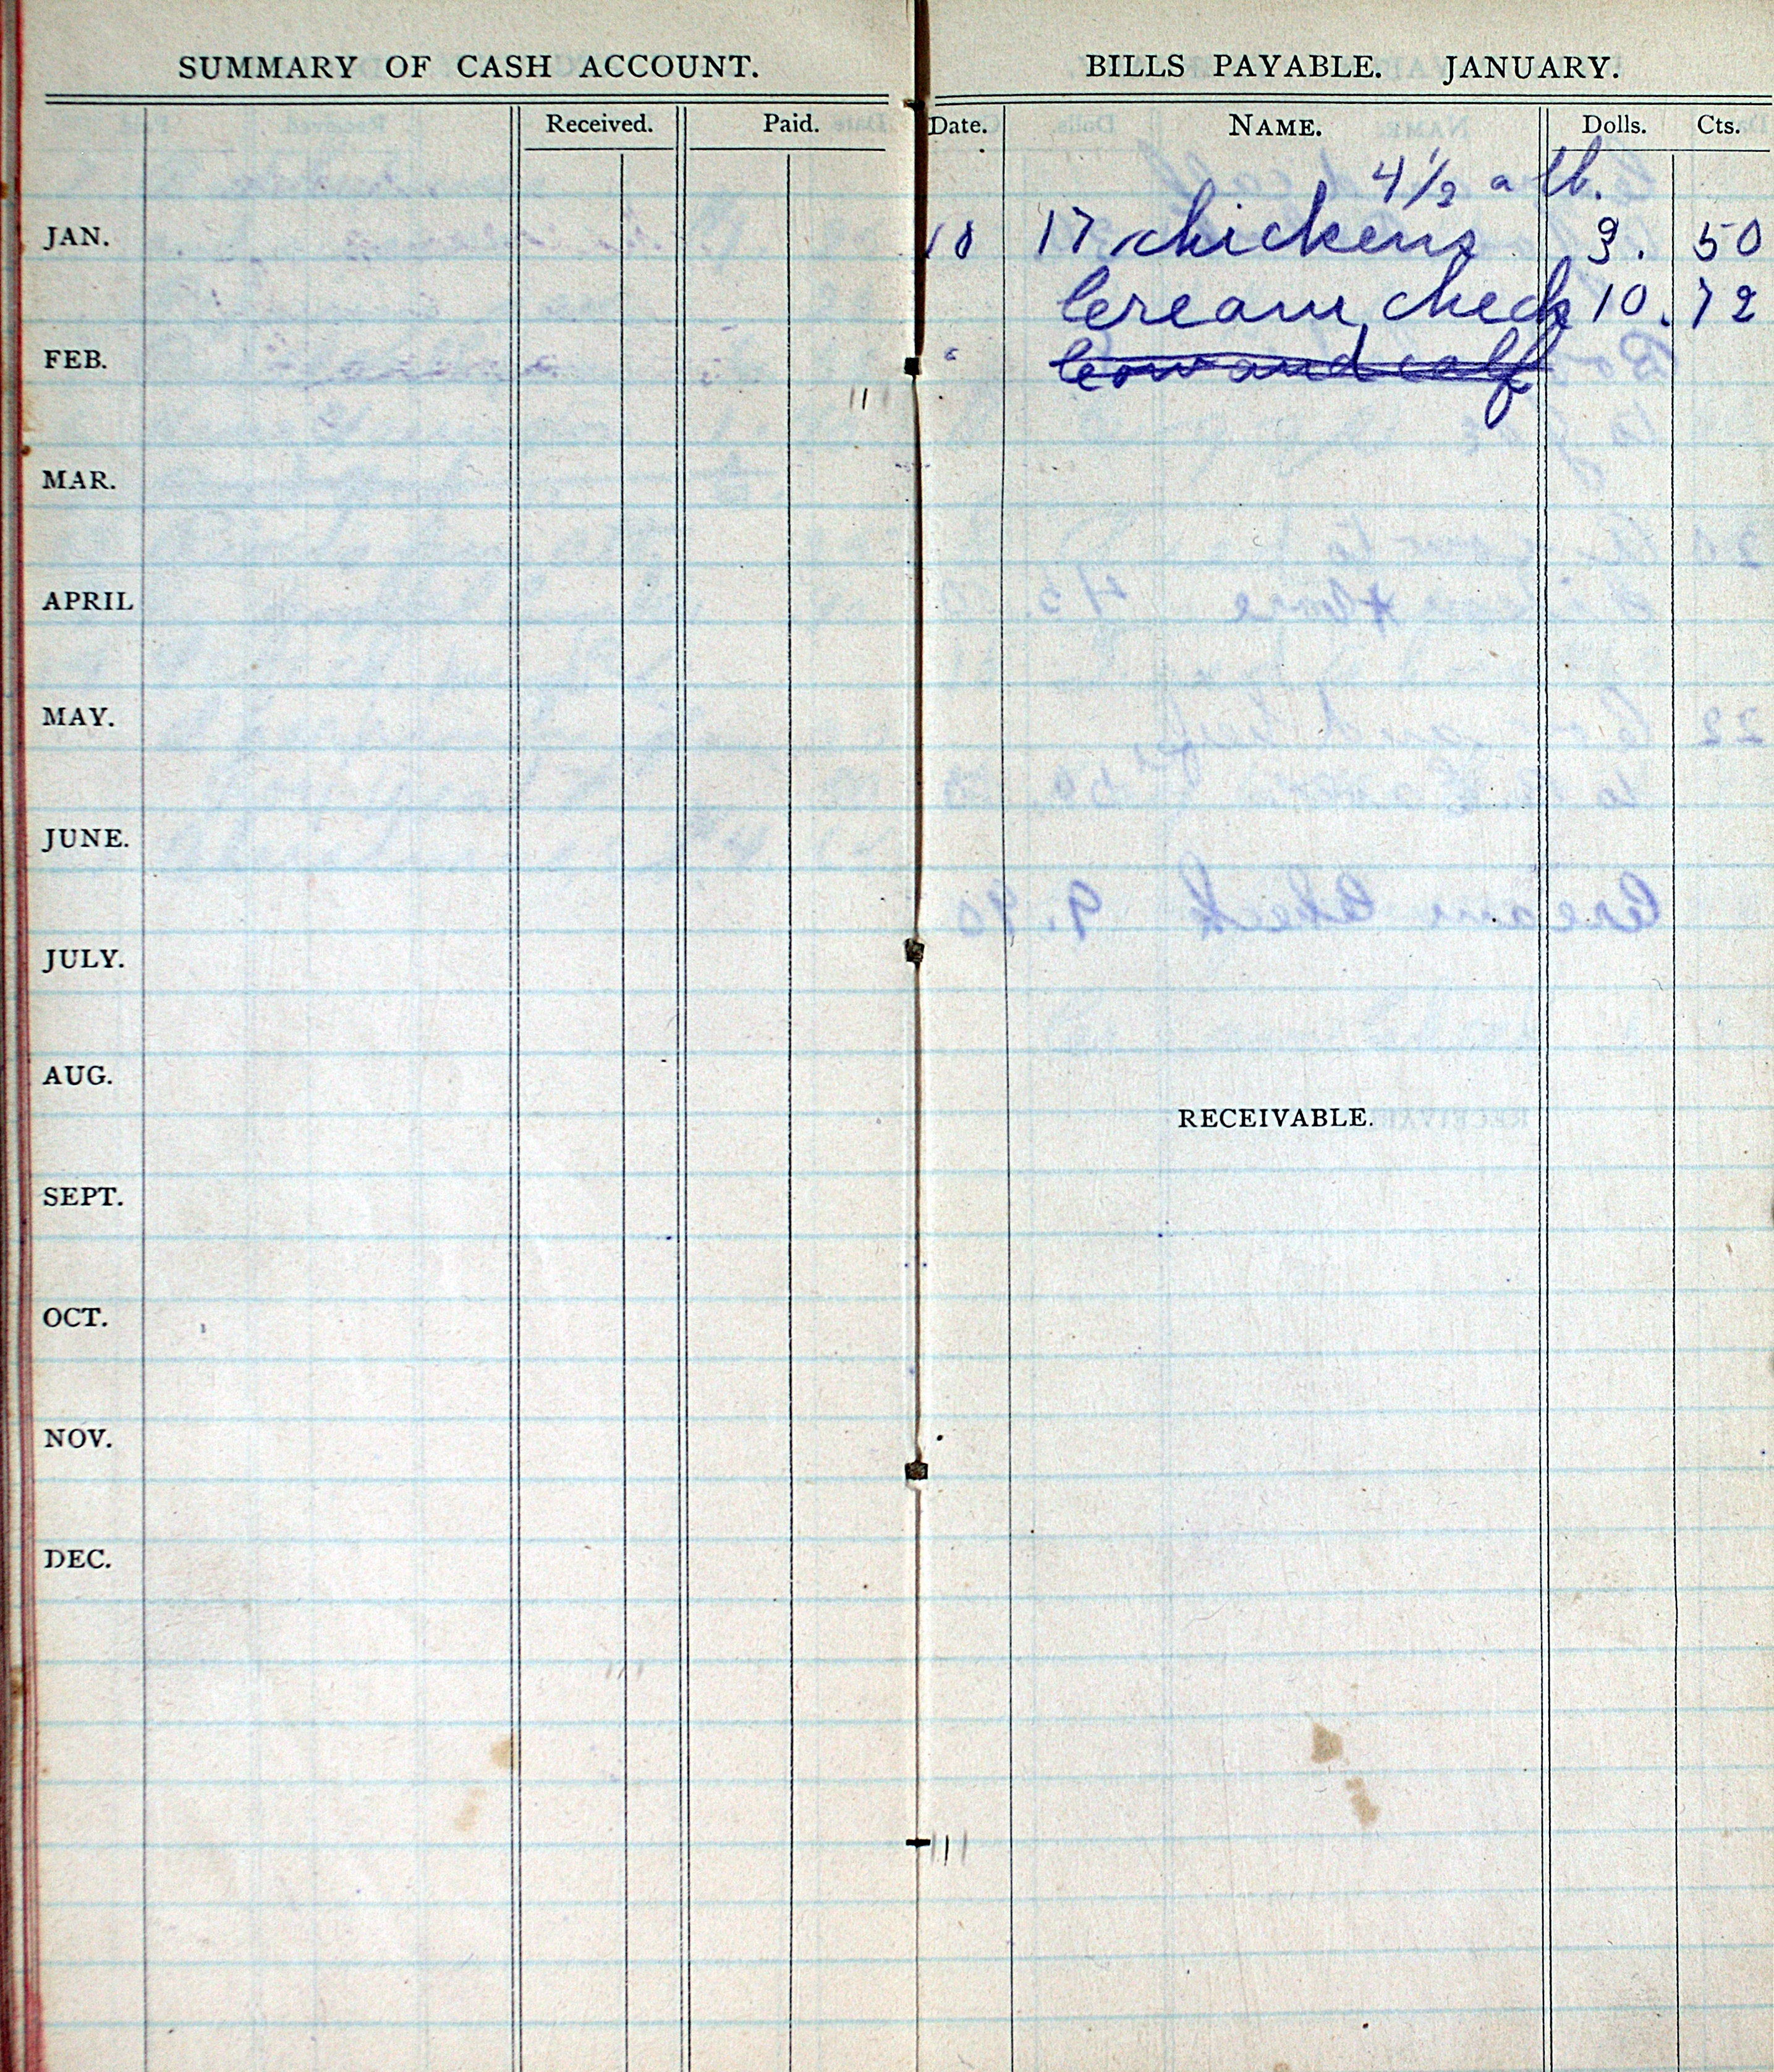 SUMMARY OF CASH ACCOUNT.
Received. Paid.
JAN.
FEB.
MAR.
APRIL
MAY.
JUNE.
JULY.
AUG.
SEPT.
OCT.
NOV.
DEC.
BILLS PAYABLE. JANUARY.
Date. NAME. Dolls. Cts.
4 1/2 a lb.
18 17 chickens 9. 50
Cream check 10. 72
Cow and calf
RECEIVABLE.